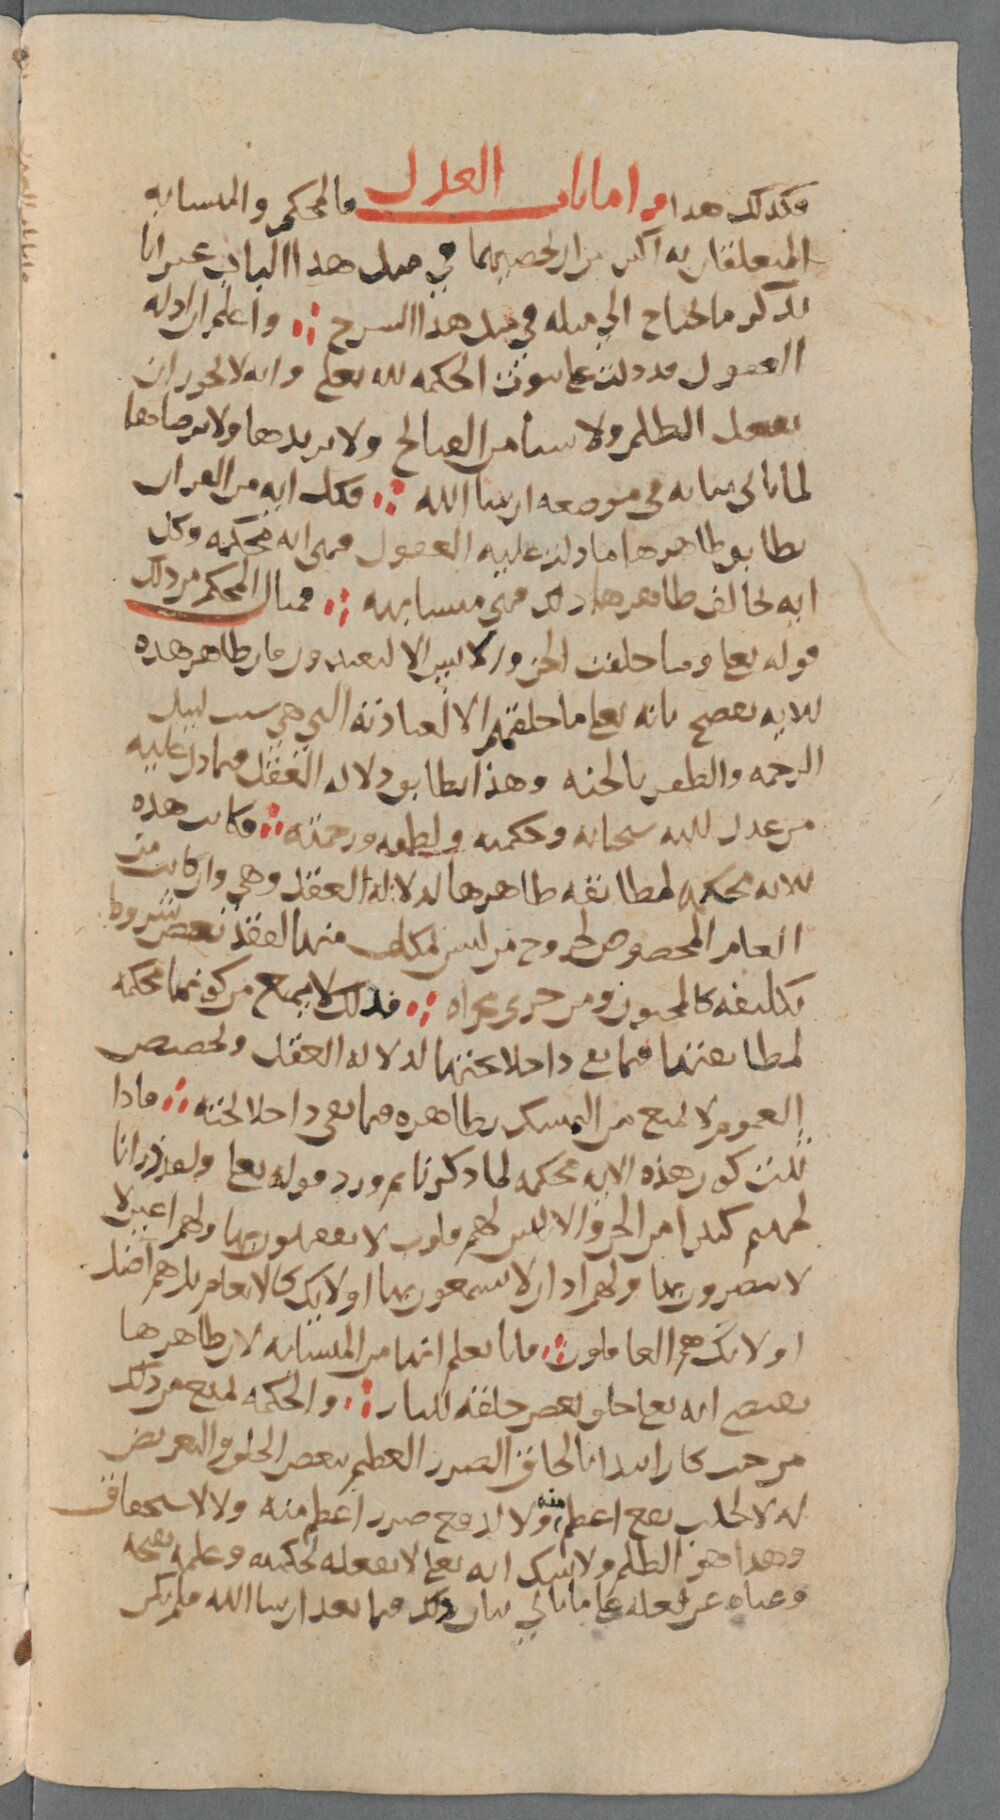 فكذلك هذا واما باب العدل فالمحكم والمتشابه
المتعلقان به اكثر من ان نحصيهما في مثل هذا الباب غير انا
نذكر ما يحتاج الى مثله في مثل هذا الشرح ∴ واعلم ان ادله
العقول قد دلت على ثبوت الحكمه لله تعلى وانه لا يجوز ان
يفعل الظلم ولا شيا من القبائح ولا يريدها ولا يرضاها
لما ياتي بيانه في موضعه ان شا الله ∴ فكل ايه من القران
يطابق ظاهرها ما دلت عليه العقول فهي ايه محكمه وكل
ايه يخالف ظاهرها ذلك فهي متشابهه ∴ فمثال المحكم من ذلك
قوله تعلى وما خلقت الجن والانس الا ليعبدون فان ظاهر هذه
الايه يقضي بانه تعلى ما خلقهم الا لعبادته التي هي سبب لنيل
الرحمه والظفر بالجنه وهذا يطابق دلاله العقل فيما دل عليه
من عدل الله سبحانه وحكمته ولطفه ورحمته ∴ فكانت هذه
الايه محكمه لمطابقه ظاهرها لدلاله العقل وهي وان كانت من
العام المخصوص لخروج من ليس بمكلف منها لفقد بعض شروط
تكليفه كالمجنون ومن جرى مجراه ∴ فذلك لا يمنع من كونها محكمه
لمطابقتها فيما بقي داخلا تحتها لدلاله العقل وتخصيص
العموم لا يمنع من التمسك بظاهره فيما بقي داخلا تحته ∴ فاذا
ثبت كون هذه الايه محكمه لما ذكرنا ثم ورد قوله تعلى ولقد ذرانا
لجهنم كثيرا من الجن والانس لهم قلوب لا يفقهون بها ولهم اعين لا
لا يبصرون بها ولهم اذان لا يسمعون بها اولايك كالانعام بل هم اضل
اولايك هم الغافلون ∴ فانا نعلم انها من المتشابه لان ظاهرها
يقتضي انه تعلى خلق بعض خلقه للنار ∴ والحكمه تمنع من ذلك
من حيث كان ابتدا بالحاق الضرر العظيم ببعض الخلق والتعريض
له لا لجلب نفع اعظم منه ولا لدفع ضرر اعظم منه ولا لاستحقاق
وهذا هو الظلم ولا شك انه تعلى لا يفعله لحكمته وعلمه بقبحه
وغناه عن فعله على ما ياتي بيان ذلك فيما بعد ان شا الله فلم يكن